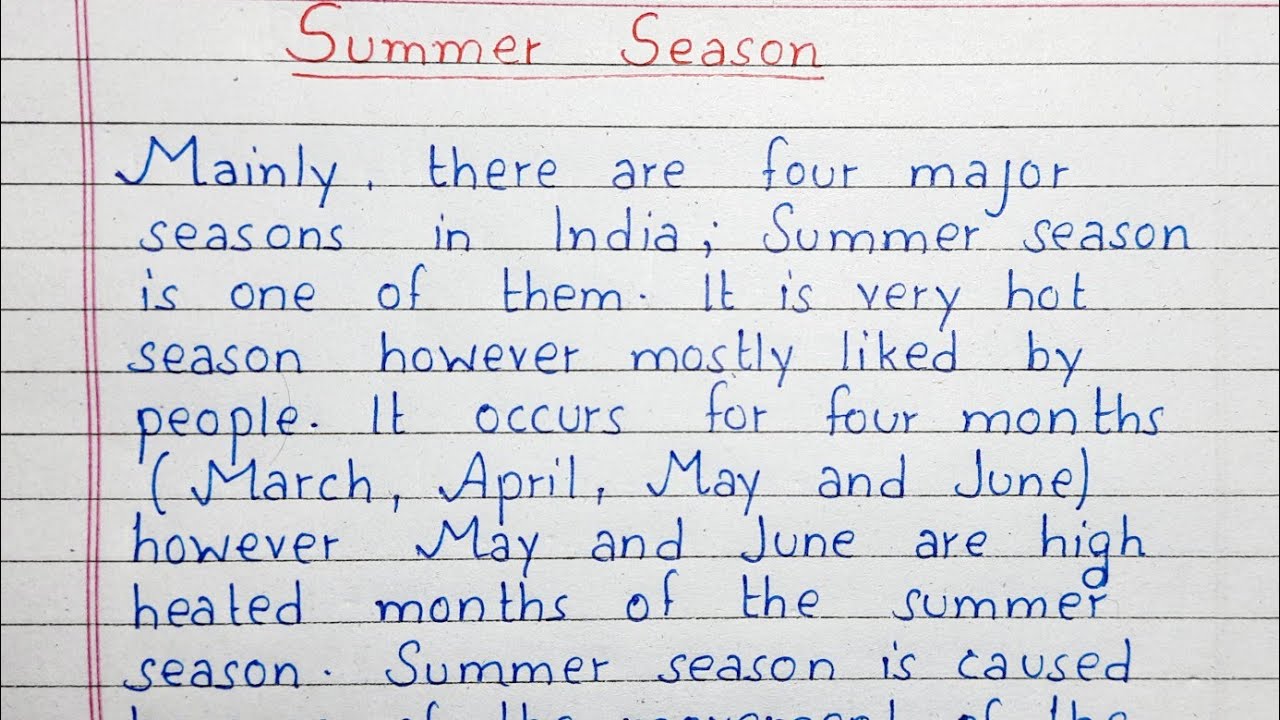 Summer Season
Mainly, there are four major
seasons in India; Summer season
is one of them. It is very hot
season however mostly liked by
people. It occurs for four months
(March, April, May and June)
however May and June are high
heated months of the summer
season. Summer season is caused
of the movement of the